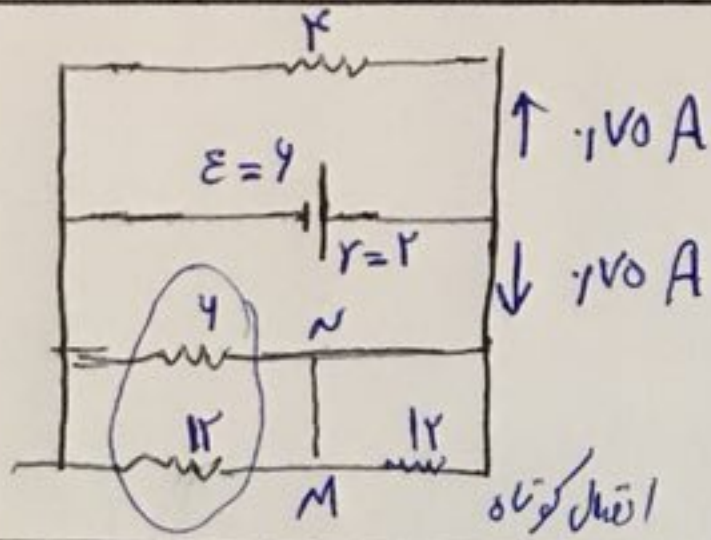 ۴
↑ ۰٫۷۵ A
ε = ۶
r = ۲
↓ ۰٫۷۵ A
۶ N
۱۲ M ۱۲
اتصال کوتاه